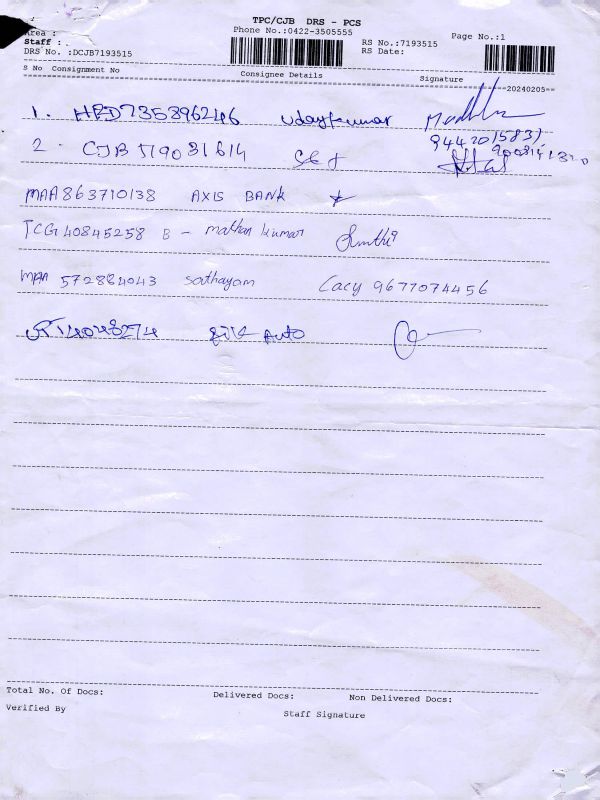 TPC/CJB DRS - PCS
Area :
Phone No.:0422-3505555
Page No.:1
Staff : .
RS No.:7193515
DRS No. :DCJB7193515
RS Date:
S No Consignment No Consignee Details Signature
20240205
1. HPD735896246 Udaykumar
944201583)
2. CJB 519031614
MAA863710138 AXIS BANK
TCG 40845258 B - mathan kumar
MAA 572884043 Sathayam Cacy 9677074456
Auto
Total No. Of Docs: Delivered Docs: Non Delivered Docs:
Verified By
Staff Signature